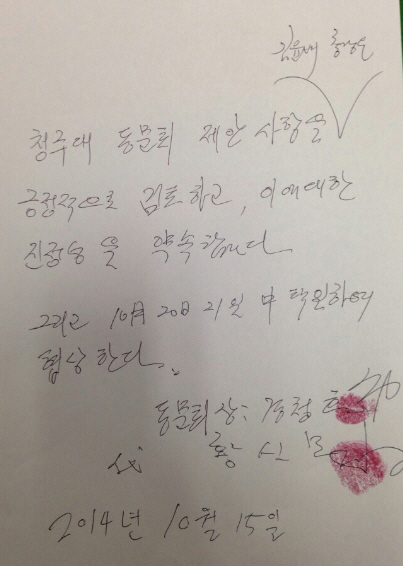 청주대 동문회 제안 사항을
긍정적으로 검토하고, 이에 대한
진행을 약속합니다
그리고 10月 20日 21일 中 택일하여
협상한다.
동문회장: 경청
代 황신모
2014년 10월 15일